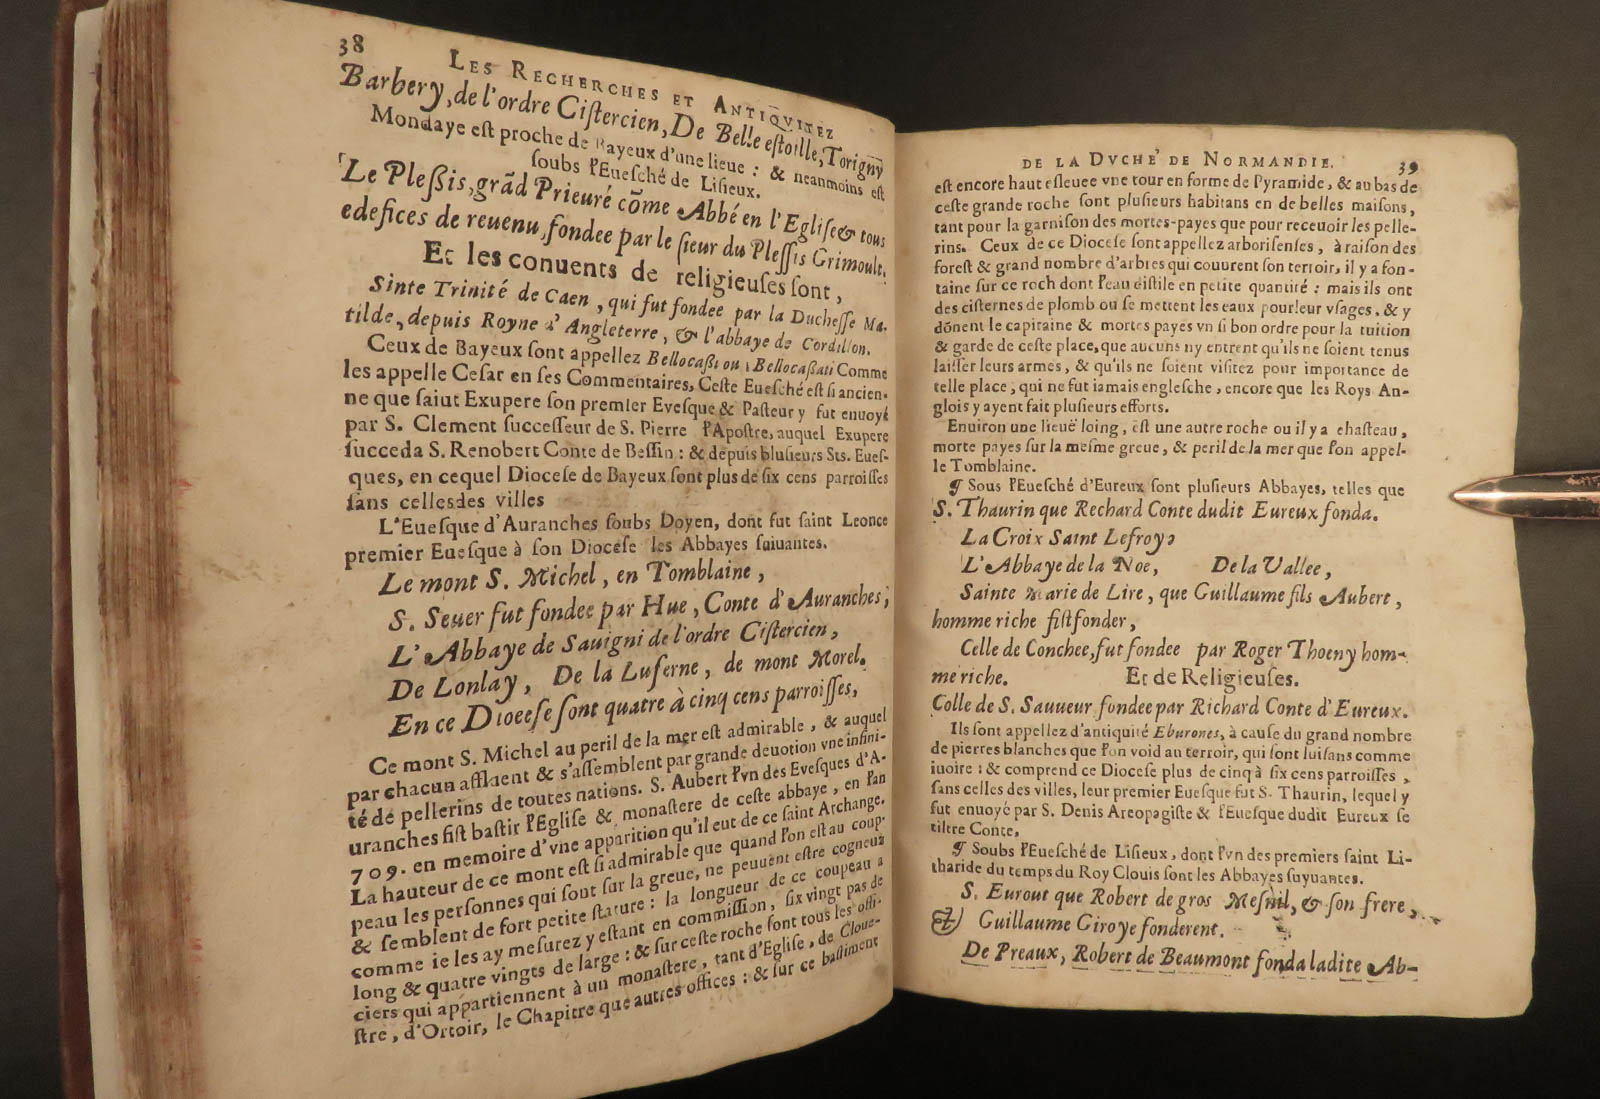 38
LES RECHERCHES ET ANTIQVITEZ
Barbery, de l'ordre Ciſtercien, De Belle eſtoille, Torigny
Mondaye eſt proche de Bayeux d'une lieue : & neanmoins eſt
ſoubs l'Eueſché de Liſieux.
Le Pleſſis, grãd Prieuré cõme Abbé en l'Egliſe & tous
edefices de reuenu, fondee par le ſieur du Pleſſis Grimoult.
Et les conuents de religieuſes ſont,
Sinte Trinité de Caen, qui fut fondee par la Ducheſſe Ma-
tilde, depuis Royne d'Angleterre, & l'abbaye de Cordillon.
Ceux de Bayeux ſont appellez Bellocaſſi ou Bellocaſſati Comme
les appelle Ceſar en ſes Commentaires, Ceſte Eueſché eſt ſi ancien-
ne que ſaiut Exupere ſon premier Eveſque & Paſteur y fut enuoyé
par S. Clement ſucceſſeur de S. Pierre l'Apoſtre, auquel Exupere
ſucceda S. Renobert Conte de Beſſin : & depuis bluſieurs Sts. Eueſ-
ques, en cequel Dioceſe de Bayeux ſont plus de ſix cens parroiſſes
ſans celles des villes
L'Eueſque d'Auranches ſoubs Doyen, dont fut ſaint Leonce
premier Eueſque à ſon Dioceſe les Abbayes ſuiuantes.
Le mont S. Michel, en Tomblaine,
S. Seuer fut fondee par Hue, Conte d'Auranches,
L'Abbaye de Sauigni de l'ordre Ciſtercien,
De Lonlay, De la Luſerne, de mont Morel.
En ce Dioeeſe ſont quatre à cinq cens parroiſſes,
Ce mont S. Michel au peril de la mer eſt admirable, & auquel
par chacun afflaent & s'aſſemblent par grande deuotion vne infini-
té de pellerins de toutes nations. S. Aubert l'vn des Eveſques d'A-
uranches fiſt baſtir l'Egliſe & monaſtere de ceſte abbaye, en l'an
709. en memoire d'vne apparition qu'il eut de ce ſaint Archange.
La hauteur de ce mont eſt ſi admirable que quand l'on eſt au coup-
peau les perſonnes qui ſont ſur la greue, ne peuuent eſtre cogneuz
& ſemblent de fort petite ſtature : la longueur de ce coupeau a
comme ie les ay meſurez y eſtant en commiſſion, ſix vingt pas de
long & quatre vingts de large : & ſur ceſte roche ſont tous les offi-
ciers qui appartiennent à un monaſtere, tant d'Egliſe, de Cloue-
ſtre, d'Ortoir, le Chapitre que autres offices : & ſur ce baſtiment
DE LA DVCHÉ DE NORMANDIE. 39
eſt encore haut eſleuee vne tour en forme de Pyramide, & au bas de
ceſte grande roche ſont pluſieurs habitans en de belles maiſons,
tant pour la garniſon des mortes-payes que pour receuoir les pelle-
rins. Ceux de ce Dioceſe ſont appellez arboriſenſes, à raiſon des
foreſt & grand nombre d'arbres qui couurent ſon terroir, il y a fon-
taine ſur ce roch dont l'eau diſtile en petite quantité : mais ils ont
des ciſternes de plomb ou ſe mettent les eaux pour leur vſages, & y
dõnent le capitaine & mortes payes vn ſi bon ordre pour la tuition
& garde de ceſte place, que aucuns ny entrent qu'ils ne ſoient tenus
laiſſer leurs armes, & qu'ils ne ſoient viſitez pour importance de
telle place, qui ne fut iamais engleſche, encore que les Roys An-
glois y ayent fait pluſieurs efforts.
Enuiron une lieuë loing, eſt une autre roche ou il y a chaſteau,
morte payes ſur la meſme greue, & peril de la mer que l'on appel-
le Tomblaine.
¶ Sous l'Eueſché d'Eureux ſont pluſieurs Abbayes, telles que
S. Thaurin que Rechard Conte dudit Eureux fonda.
La Croix Saint Lefroy,
L'Abbaye de la Noe, De la Vallee,
Sainte Marie de Lire, que Guillaume fils Aubert,
homme riche fiſt fonder,
Celle de Conchee, fut fondee par Roger Thoeny hom-
me riche. Et de Religieuſes.
Colle de S. Sauueur fondee par Richard Conte d'Eureux.
Ils ſont appellez d'antiquité Eburones, à cauſe du grand nombre
de pierres blanches que l'on void au terroir, qui ſont luiſans comme
iuoire : & comprend ce Dioceſe plus de cinq à ſix cens parroiſſes,
ſans celles des villes, leur premier Eueſque fut S. Thaurin, lequel y
fut enuoyé par S. Denis Areopagiſte & l'Eueſque dudit Eureux ſe
tiltre Conte,
¶ Soubs l'Eueſché de Liſieux, dont l'vn des premiers ſaint Li-
tharide du temps du Roy Clouis ſont les Abbayes ſuyuantes.
S. Eurout que Robert de gros Meſnil, & ſon frere,
Guillaume Giroye fonderent.
De Preaux, Robert de Beaumont fonda ladite Ab-